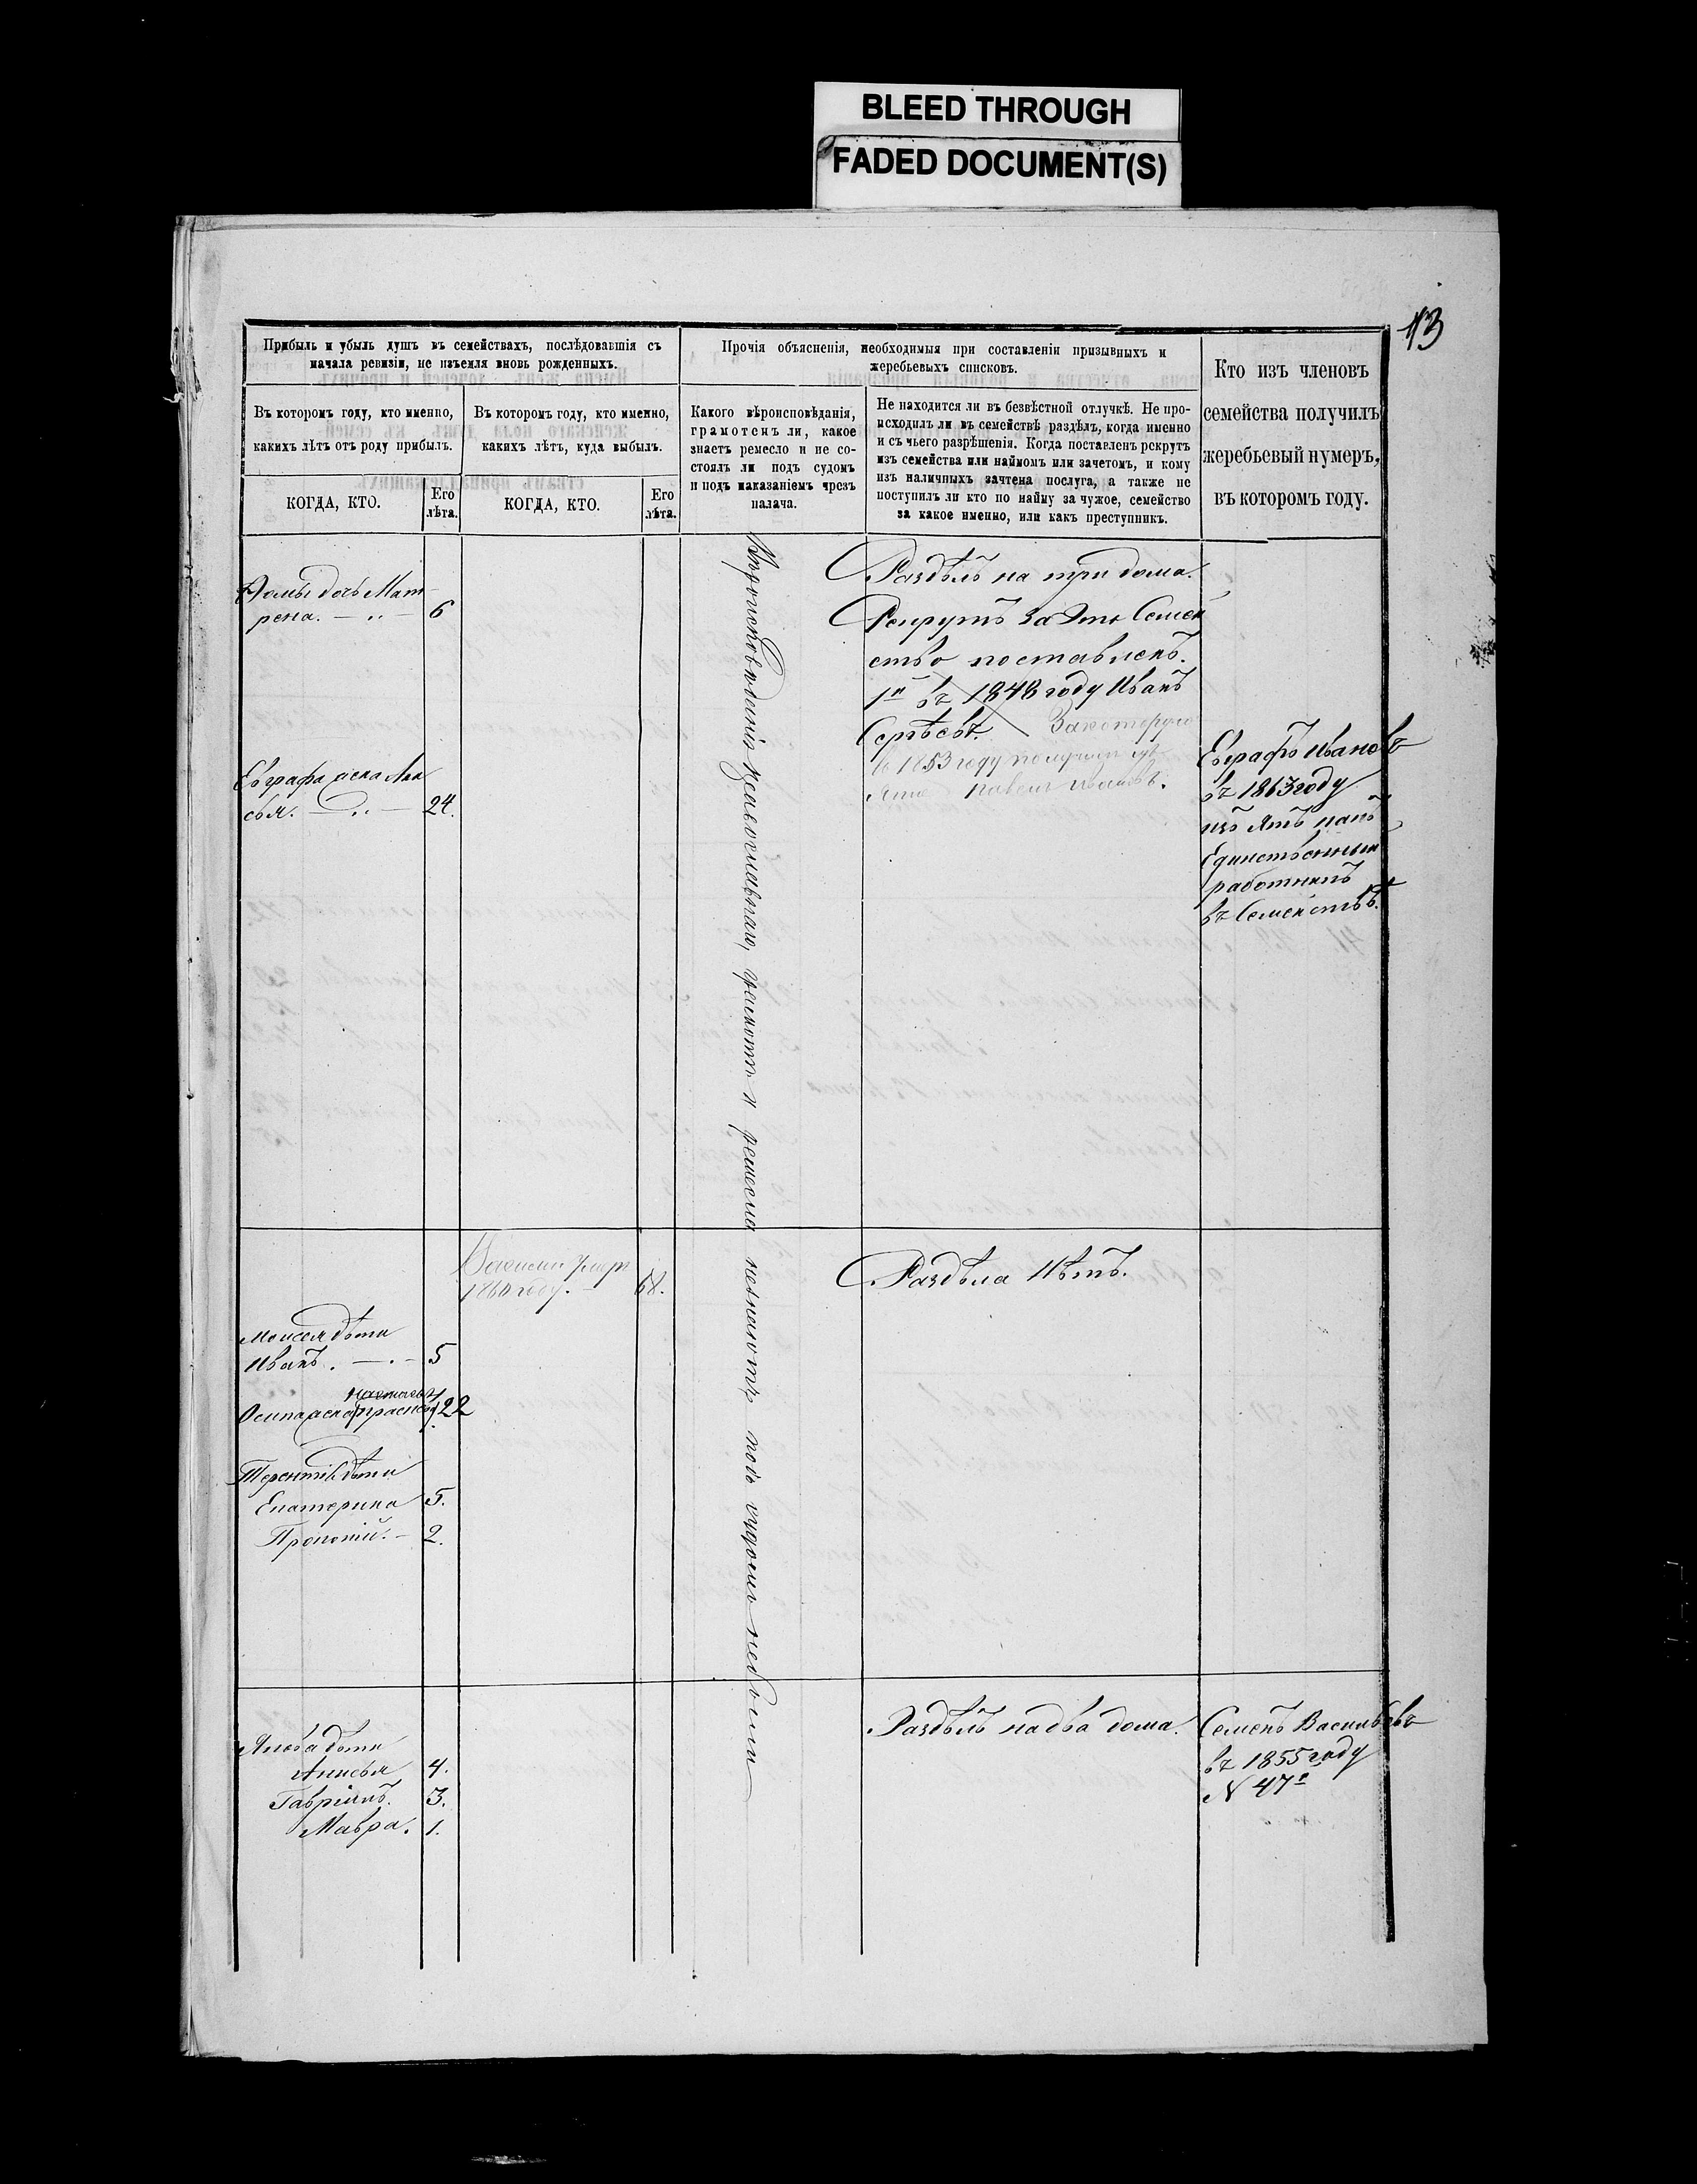 BLEED THROUGH
FADED DOCUMENT(S)
13
Прибыль и убыль душъ въ семействахъ, послѣдовавшія съ
начала ревизіи, не изъемля вновь рожденныхъ.
Прочія объясненія, необходимыя при составленіи призывныхъ и
жеребьевыхъ списковъ.
Кто изъ членовъ
семейства получилъ
жеребьевый нумеръ,
въ которомъ году.
Въ которомъ году, кто именно,
какихъ лѣтъ отъ роду прибылъ.
Въ которомъ году, кто именно,
какихъ лѣтъ, куда выбылъ.
Какого вѣроисповѣданія,
грамотенъ ли, какое
знаетъ ремесло и не со-
стоялъ ли подъ судомъ
и подъ наказаніемъ чрезъ
палача.
Не находится ли въ безвѣстной отлучкѣ. Не про-
исходилъ ли въ семействѣ раздѣлъ, когда именно
и съ чьего разрѣшенія. Когда поставленъ рекрутъ
изъ семейства или наймомъ или зачетомъ, и кому
изъ наличныхъ зачтена послуга, а также не
поступилъ ли кто по найму за чужое, семейство
за какое именно, или какъ преступникъ.
КОГДА, КТО.
Его
лѣта.
КОГДА, КТО.
Его
лѣта.
Фомы дочь Мат-
рена. 6
Евграфа жена
24.
Вѣроисповѣденія православнаго, грамотѣ и ремесла незнаютъ подъ судомъ небыли
Раздѣлъ на три дома.
Рекрутъ за Это Семей
ство поставленъ.
1й въ 1848 году Иванъ
Сергѣевъ. Закоторую
1853 году получили
Павелъ Ивановъ.
Евграфъ Ивановъ
въ 1863 году
какъ
Единственный
работникъ
въ Семействѣ.
Василій умеръ
1860 году. 68.
Раздѣла Нѣтъ.
Моисея дѣти
Иванъ. 5
Осипа жена 22
Терентія дѣти
Екатерина 5.
Прокопій. 2.
Раздѣлъ на два дома.
Семенъ Васильевъ
въ 1855 году
N 47
Якова дѣти
Анисья 4.
Гавріилъ. 3.
Мавра. 1.